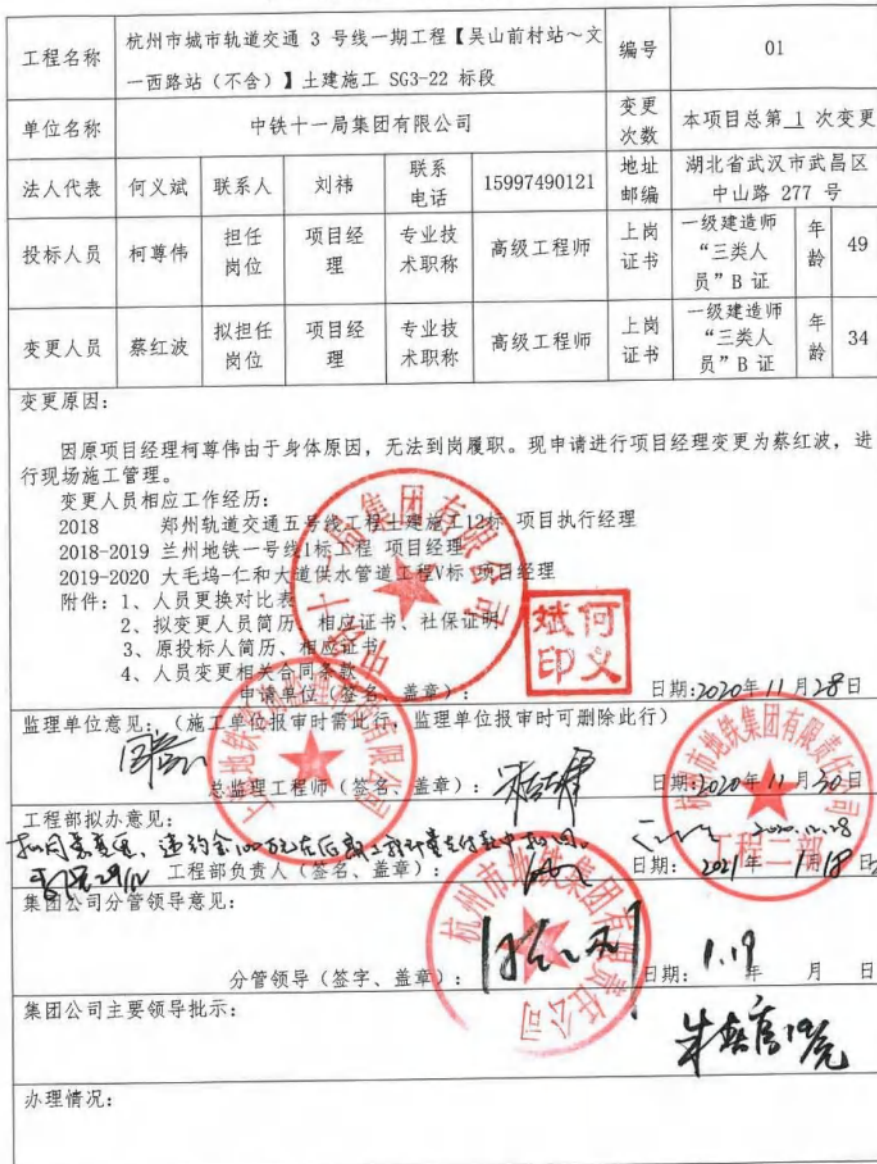 工程名称 杭州市城市轨道交通 3 号线一期工程【吴山前村站～文一西路站（不含）】土建施工 SG3-22 标段 编号 01
单位名称 中铁十一局集团有限公司 变更次数 本项目总第 1 次变更
法人代表 何义斌 联系人 刘祎 联系电话 15997490121 地址邮编 湖北省武汉市武昌区中山路 277 号
投标人员 柯尊伟 担任岗位 项目经理 专业技术职称 高级工程师 上岗证书 一级建造师“三类人员”B 证 年龄 49
变更人员 蔡红波 拟担任岗位 项目经理 专业技术职称 高级工程师 上岗证书 一级建造师“三类人员”B 证 年龄 34
变更原因：
因原项目经理柯尊伟由于身体原因，无法到岗履职。现申请进行项目经理变更为蔡红波，进
行现场施工管理。
变更人员相应工作经历：
2018 郑州轨道交通五号线工程土建施工12标 项目执行经理
2018-2019 兰州地铁一号线1标工程 项目经理
2019-2020 大毛坞-仁和大道供水管道工程V标 项目经理
附件：1、人员更换对比表
2、拟变更人员简历、相应证书、社保证明
3、原投标人简历、相应证书
4、人员变更相关合同条款
申请单位（签名、盖章）： 日期:2020年11月28日
何义斌印
监理单位意见：（施工单位报审时需此行，监理单位报审时可删除此行）
同意
总监理工程师（签名、盖章）： 日期:2020年11月30日
杭州市地铁集团有限责任公司
工程二部
工程部拟办意见：
拟同意变更、违约金100万元在后期工程计量支付款中扣回。
2020.12.28
工程部负责人（签名、盖章）： 日期: 2021年 1月18日
集团公司分管领导意见：
杭州市地铁集团有限责任公司
分管领导（签字、盖章）： 日期: 1.19 年 月 日
集团公司主要领导批示：
办理情况：